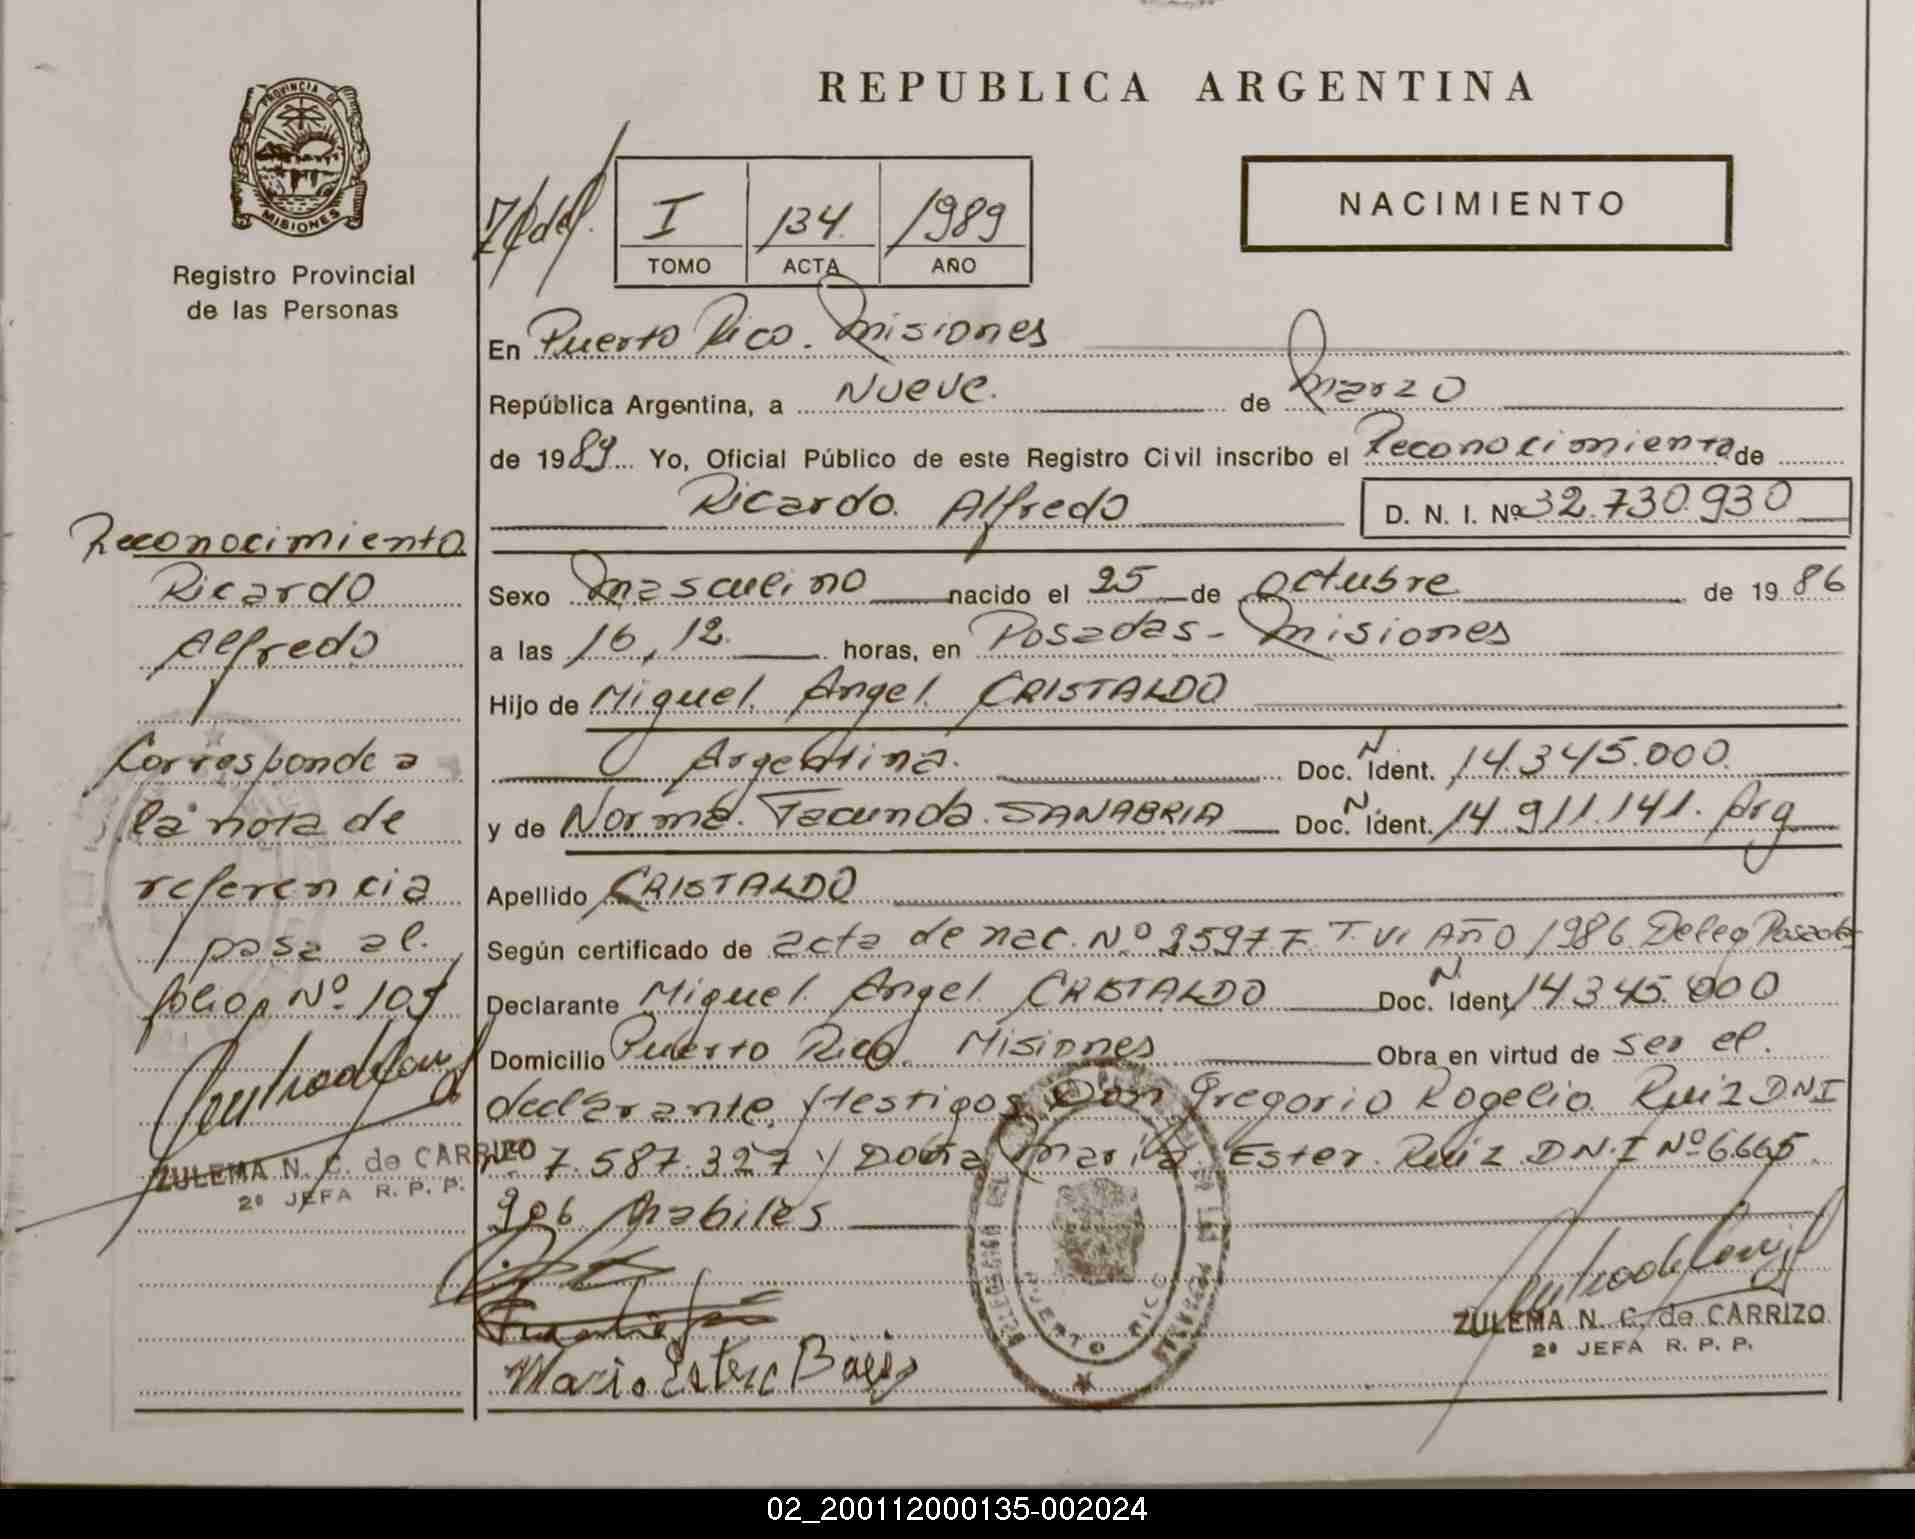 REPUBLICA ARGENTINA
PROVINCIA DE
MISIONES
Registro Provincial
de las Personas
I 134 1989
TOMO ACTA AÑO
NACIMIENTO
En Puerto Rico. Misiones
República Argentina, a Nueve. de Marzo
de 1989 Yo, Oficial Público de este Registro Civil inscribo el Reconocimiento de
Ricardo Alfredo D. N. I. Nº 32.730.930
Sexo Masculino nacido el 25 de Octubre de 1986
a las 16,12. horas, en Posadas - Misiones
Hijo de Miguel Angel CRISTALDO
Argentina. Doc. N Ident. 14.345.000
y de Norma Facunda SANABRIA Doc. N Ident. 14.911.141. Arg
Apellido CRISTALDO
Según certificado de acta de nac. Nº 2597 F. T. VI Año 1986 Deleg Posadas
Declarante Miguel Angel CRISTALDO Doc. N Ident 14345.000
Domicilio Puerto Rico. Misiones Obra en virtud de ser el
declarante, y testigos Don Gregorio Rogelio Ruiz DNI
Nº 7.587.327 y Doña Maria Ester Ruiz DNI Nº 6.665
906 habiles
Reconocimiento
Ricardo
Alfredo
Corresponde a
la nota de
referencia
pasa al
folio Nº 105
ZULEMA N. C. de CARRIZO
2º JEFA R. P. P.
Maria Ester
PUERTO RICO
ZULEMA N. C. de CARRIZO
2º JEFA R. P. P.
02_200112000135-002024